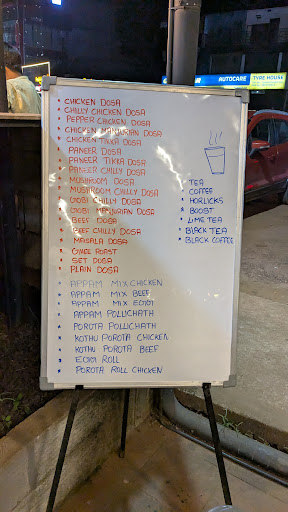 AUTOCARE TYRE HOUSE
* CHICKEN DOSA
* CHILLY CHICKEN DOSA
* PEPPER CHICKEN DOSA
* CHICKEN MANJURIAN DOSA
* CHICKEN TIKKA DOSA
* PANEER DOSA
* PANEER TIKKA DOSA
* PANEER CHILLY DOSA
* MUSHROOM DOSA
* MUSHROOM CHILLY DOSA
* GOBI CHILLY DOSA
* GOBI MANJURIAN DOSA
* BEEF DOSA
* BEEF CHILLY DOSA
* MASALA DOSA
* GHEE ROAST
* SET DOSA
* PLAIN DOSA
* APPAM MIX CHICKEN
* APPAM MIX BEEF
* APPAM MIX EGG
* APPAM POLLICHATH
* POROTA POLLICHATH
* KOTHU POROTA CHICKEN
* KOTHU POROTA BEEF
* EGG ROLL
* POROTA ROLL CHICKEN
* TEA
* COFFEE
* HORLICKS
* BOOST
* LIME TEA
* BLACK TEA
* BLACK COFFEE